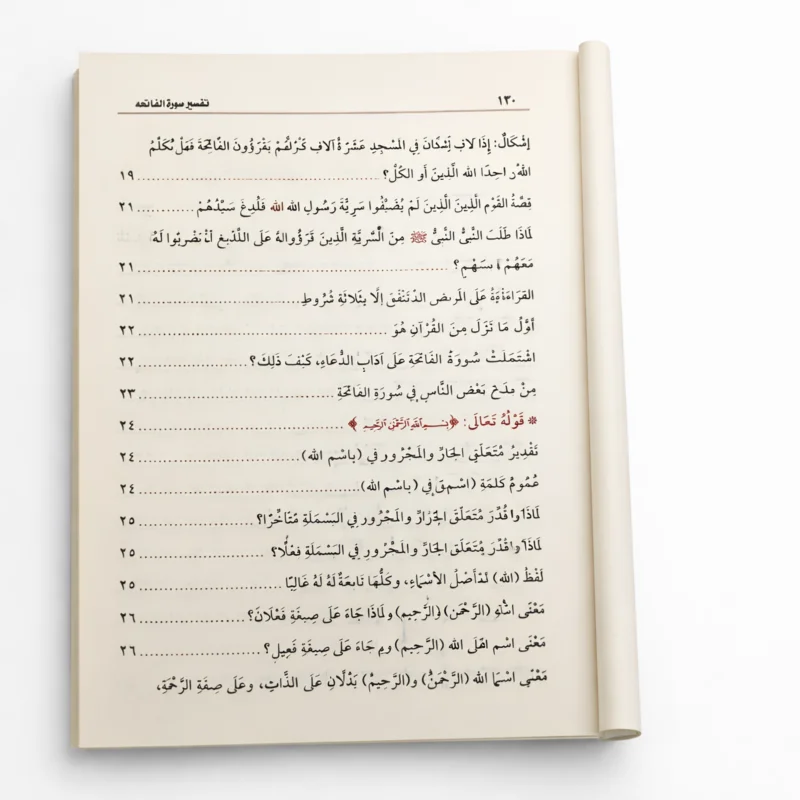 ١٣٠ تفسير سورة الفاتحه
إشْكَالٌ: إِذَا فِي المَسْجِدِ عَشَرَةُ آلافٍ يَقْرَؤُونَ الفَاتِحَةَ فَهَلْ يُكَلِّمُ
الله الَّذِينَ أَو الكُلَّ؟ ١٩
قِصَّةُ القَوْمِ الَّذِينَ الَّذِينَ لَمْ يُضَيِّفُوا سَرِيَّةَ رَسُولِ الله الله فَلُدِغَ سَيِّدُهُمْ ٢١
لمَاذَا طَلَبَ النَّبيُّ النَّبيُّ ﷺ مِنَ السَّرِيَّةِ الَّذِينَ عَلَى لَهُ
مَعَهُمْ ؟ ٢١
عَلَى إِلَّا بِثَلاثَةِ شُرُوطٍ ٢١
أَوَّلُ مَا نَزَلَ مِنَ القُرْآنِ هُوَ ٢٢
اشْتَمَلَتْ سُورَةُ الفَاتِحَةِ عَلَى آدَابِ الدُّعَاءِ، كَيْفَ ذَلِكَ؟ ٢٢
مِنْ بَعْضِ النَّاسِ فِي سُورَةِ الفَاتِحَةِ ٢٣
* قَوْلُهُ تَعَالَى: ﴿بِسْمِ ٱللَّهِ ٱلرَّحْمَٰنِ ٱلرَّحِيمِ﴾ ٢٤
تَقْدِيرُ مُتَعَلَّقِ الجَارِّ والمَجْرُورِ في (باسْمِ الله) ٢٤
عُمُومُ كَلمَةِ في (باسْمِ الله) ٢٤
قُدِّرَ مُتَعَلَّقُ والمَجْرُورِ في البَسْمَلَةِ مُتَأخِّرًا؟ ٢٥
مُتَعَلَّقُ الجَارِّ والمَجْرُورِ في البَسْمَلَةِ فعْلًا؟ ٢٥
لَفْظُ (الله) الأسْمَاءِ، وَكُلُّهَا تَابعَةٌ لَهُ لَهُ غَالبًا ٢٥
مَعْنَى (الرَّحْمَنِ) (الرَّحِيمِ) ولمَاذَا جَاءَ عَلَى صِيغَةِ فَعْلَانَ؟ ٢٦
مَعْنَى اسْمِ الله (الرَّحِيمِ) جَاءَ عَلَى صِيغَةِ فَعِيلٍ؟ ٢٦
مَعْنَى الله (الرَّحْمَنُ) و(الرَّحِيمُ) عَلَى الذَّاتِ، وعَلَى صِفَةِ الرَّحْمَةِ،